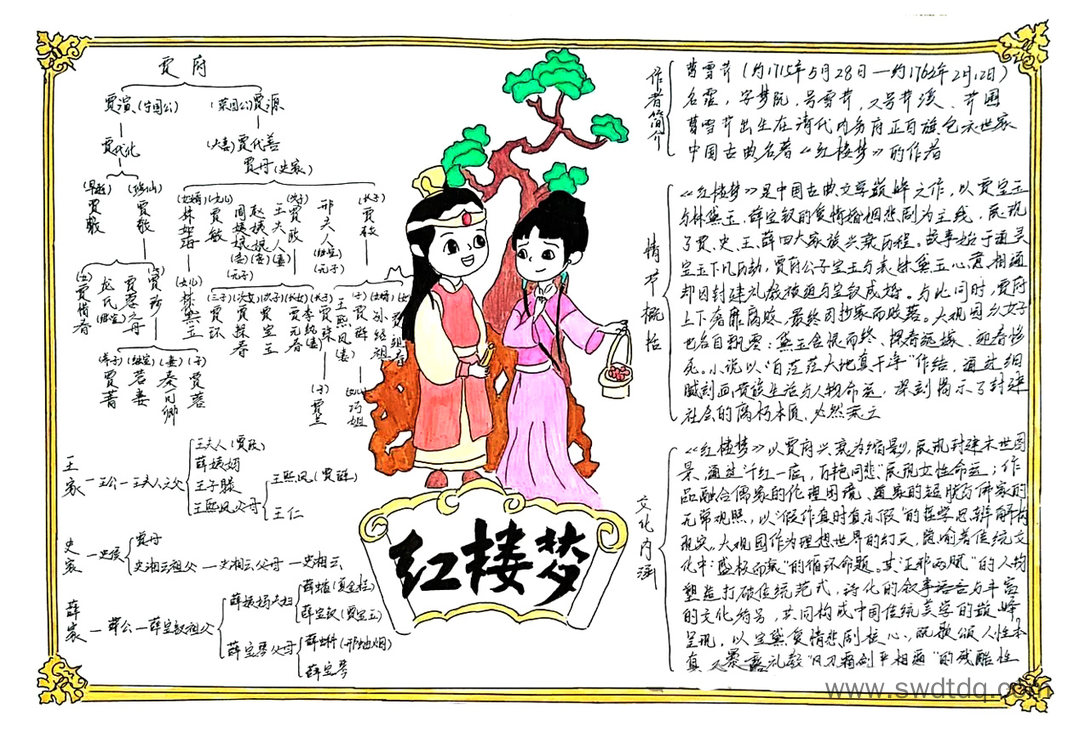 贾府
贾演(宁国公) (荣国公)贾源
贾代化 (夫妻)贾代善
贾母(史家)
(早逝) (修仙)
贾敷 贾敬
(女婿)林如海 (女儿)贾敏 周姨娘(妾) 赵姨娘(妾) 王夫人(妻) (次子)贾政 邢夫人 (长子)贾赦
(女)贾惜春 尤氏(继室) 贾蓉之母 (子)贾珍
(女儿)林黛玉 (三子)贾环 (次女)贾探春 (次子)贾宝玉 (长女)贾元春 李纨(妻) (长子)贾珠 王熙凤(妻) (子)贾琏 (女婿)孙绍祖
贾蔷 (继室) (妻)秦可卿 (子)贾蓉
(子) (女儿)巧姐
王家
王公
王夫人之父
王夫人(贾政)
薛姨妈
王子腾
王熙凤父母
王熙凤(贾琏)
王仁
史家
史侯
贾母
史湘云祖父
史湘云父母
史湘云
薛家
薛公
薛宝钗祖父
薛姨妈夫妇
薛蟠(夏金桂)
薛宝钗(贾宝玉)
薛宝琴父母
薛蝌(邢岫烟)
薛宝琴
红楼梦
作者简介
曹雪芹(约1715年5月28日—约1763年2月12日)
名霑，字梦阮，号雪芹，又号芹溪、芹圃
曹雪芹出生在清代内务府正白旗包衣世家
中国古典名著《红楼梦》的作者
情节概括
《红楼梦》是中国古典文学巅峰之作，以贾宝玉
与林黛玉、薛宝钗的爱情婚姻悲剧为主线，展现
了贾、史、王、薛四大家族兴衰历程。故事始于通灵
宝玉下凡历劫，贾府公子宝玉与表妹黛玉心意相通
却因封建礼教被迫与宝钗成婚。与此同时，贾府
上下奢靡腐败，最终因抄家而败落。大观园内女子
也各自飘零：黛玉含恨而终、探春远嫁、迎春惨
死。小说以“白茫茫大地真干净”作结，通过细
腻刻画贵族生活与人物命运，深刻揭示了封建
社会的腐朽本质、必然衰亡
文化内涵
《红楼梦》以贾府兴衰为缩影，展现封建末世图
景，通过“千红一窟，万艳同悲”展现女性命运；作
品融合儒家的伦理困境、道家的超脱与佛家的
无常观照，以“假作真时真亦假”的哲学思辨解构
现实。大观园作为理想世界的幻灭，隐喻着传统文
化中“盛极而衰”的循环命题。其“正邪两赋”的人物
塑造打破传统范式，诗化的叙事语言与丰富
的文化符号，共同构成中国传统美学的巅峰
呈现，以宝黛爱情悲剧核心，既歌颂人性本
真又暴露礼教“风刀霜剑严相逼”的残酷性
www.swdtdq.com